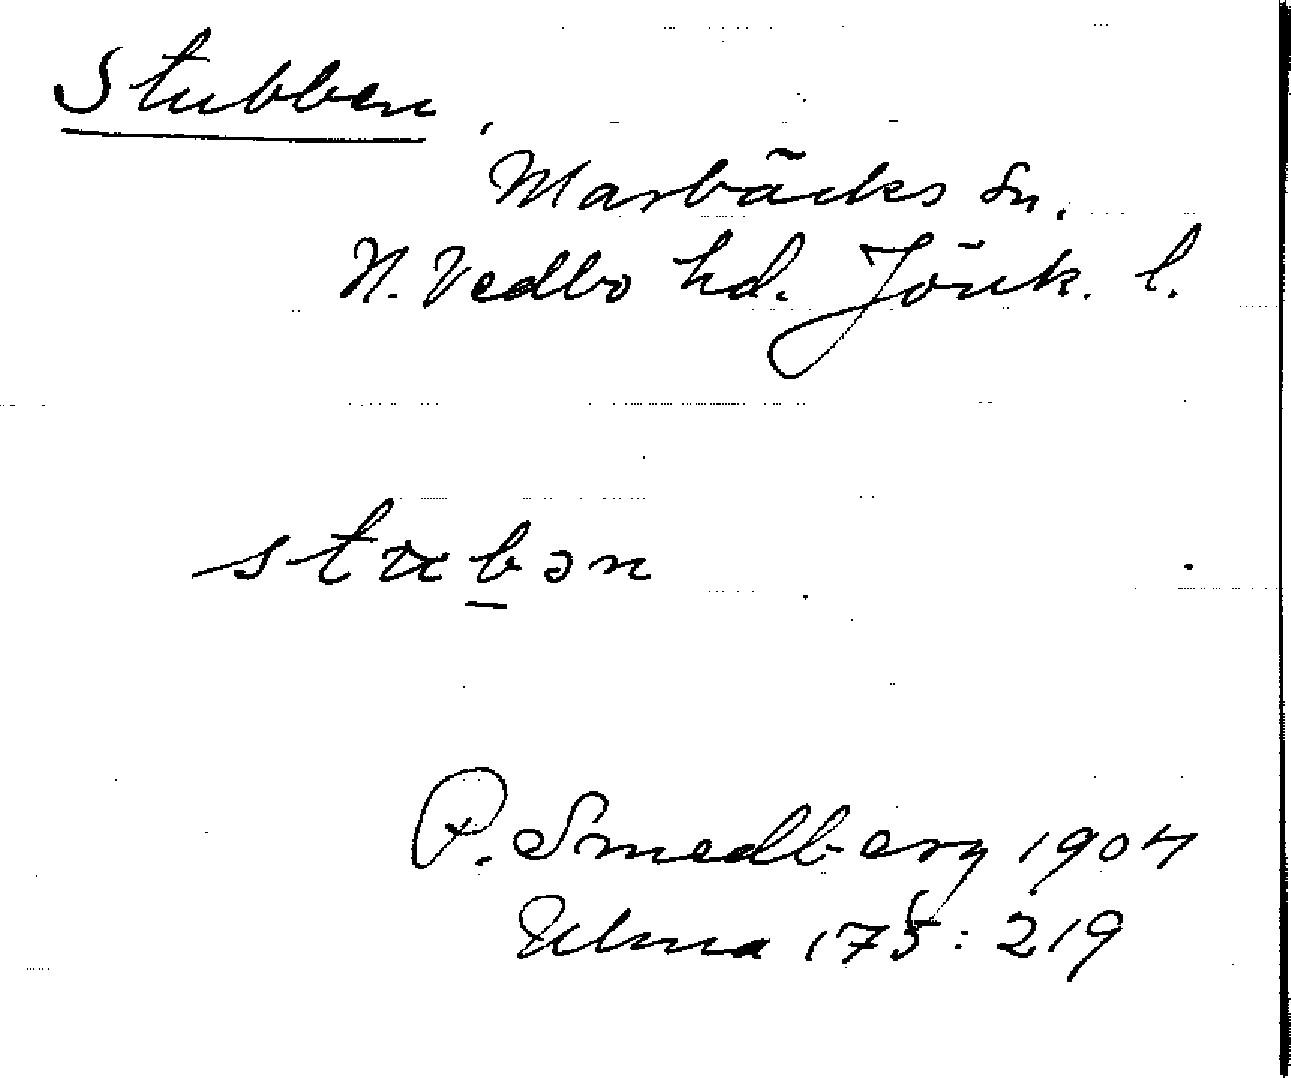 Stubben,
Marbäcks sn.
N. Vedbo hd. Jönk. l.
stu̵b̲ən
P. Smedberg 1904
Ulma 175:219